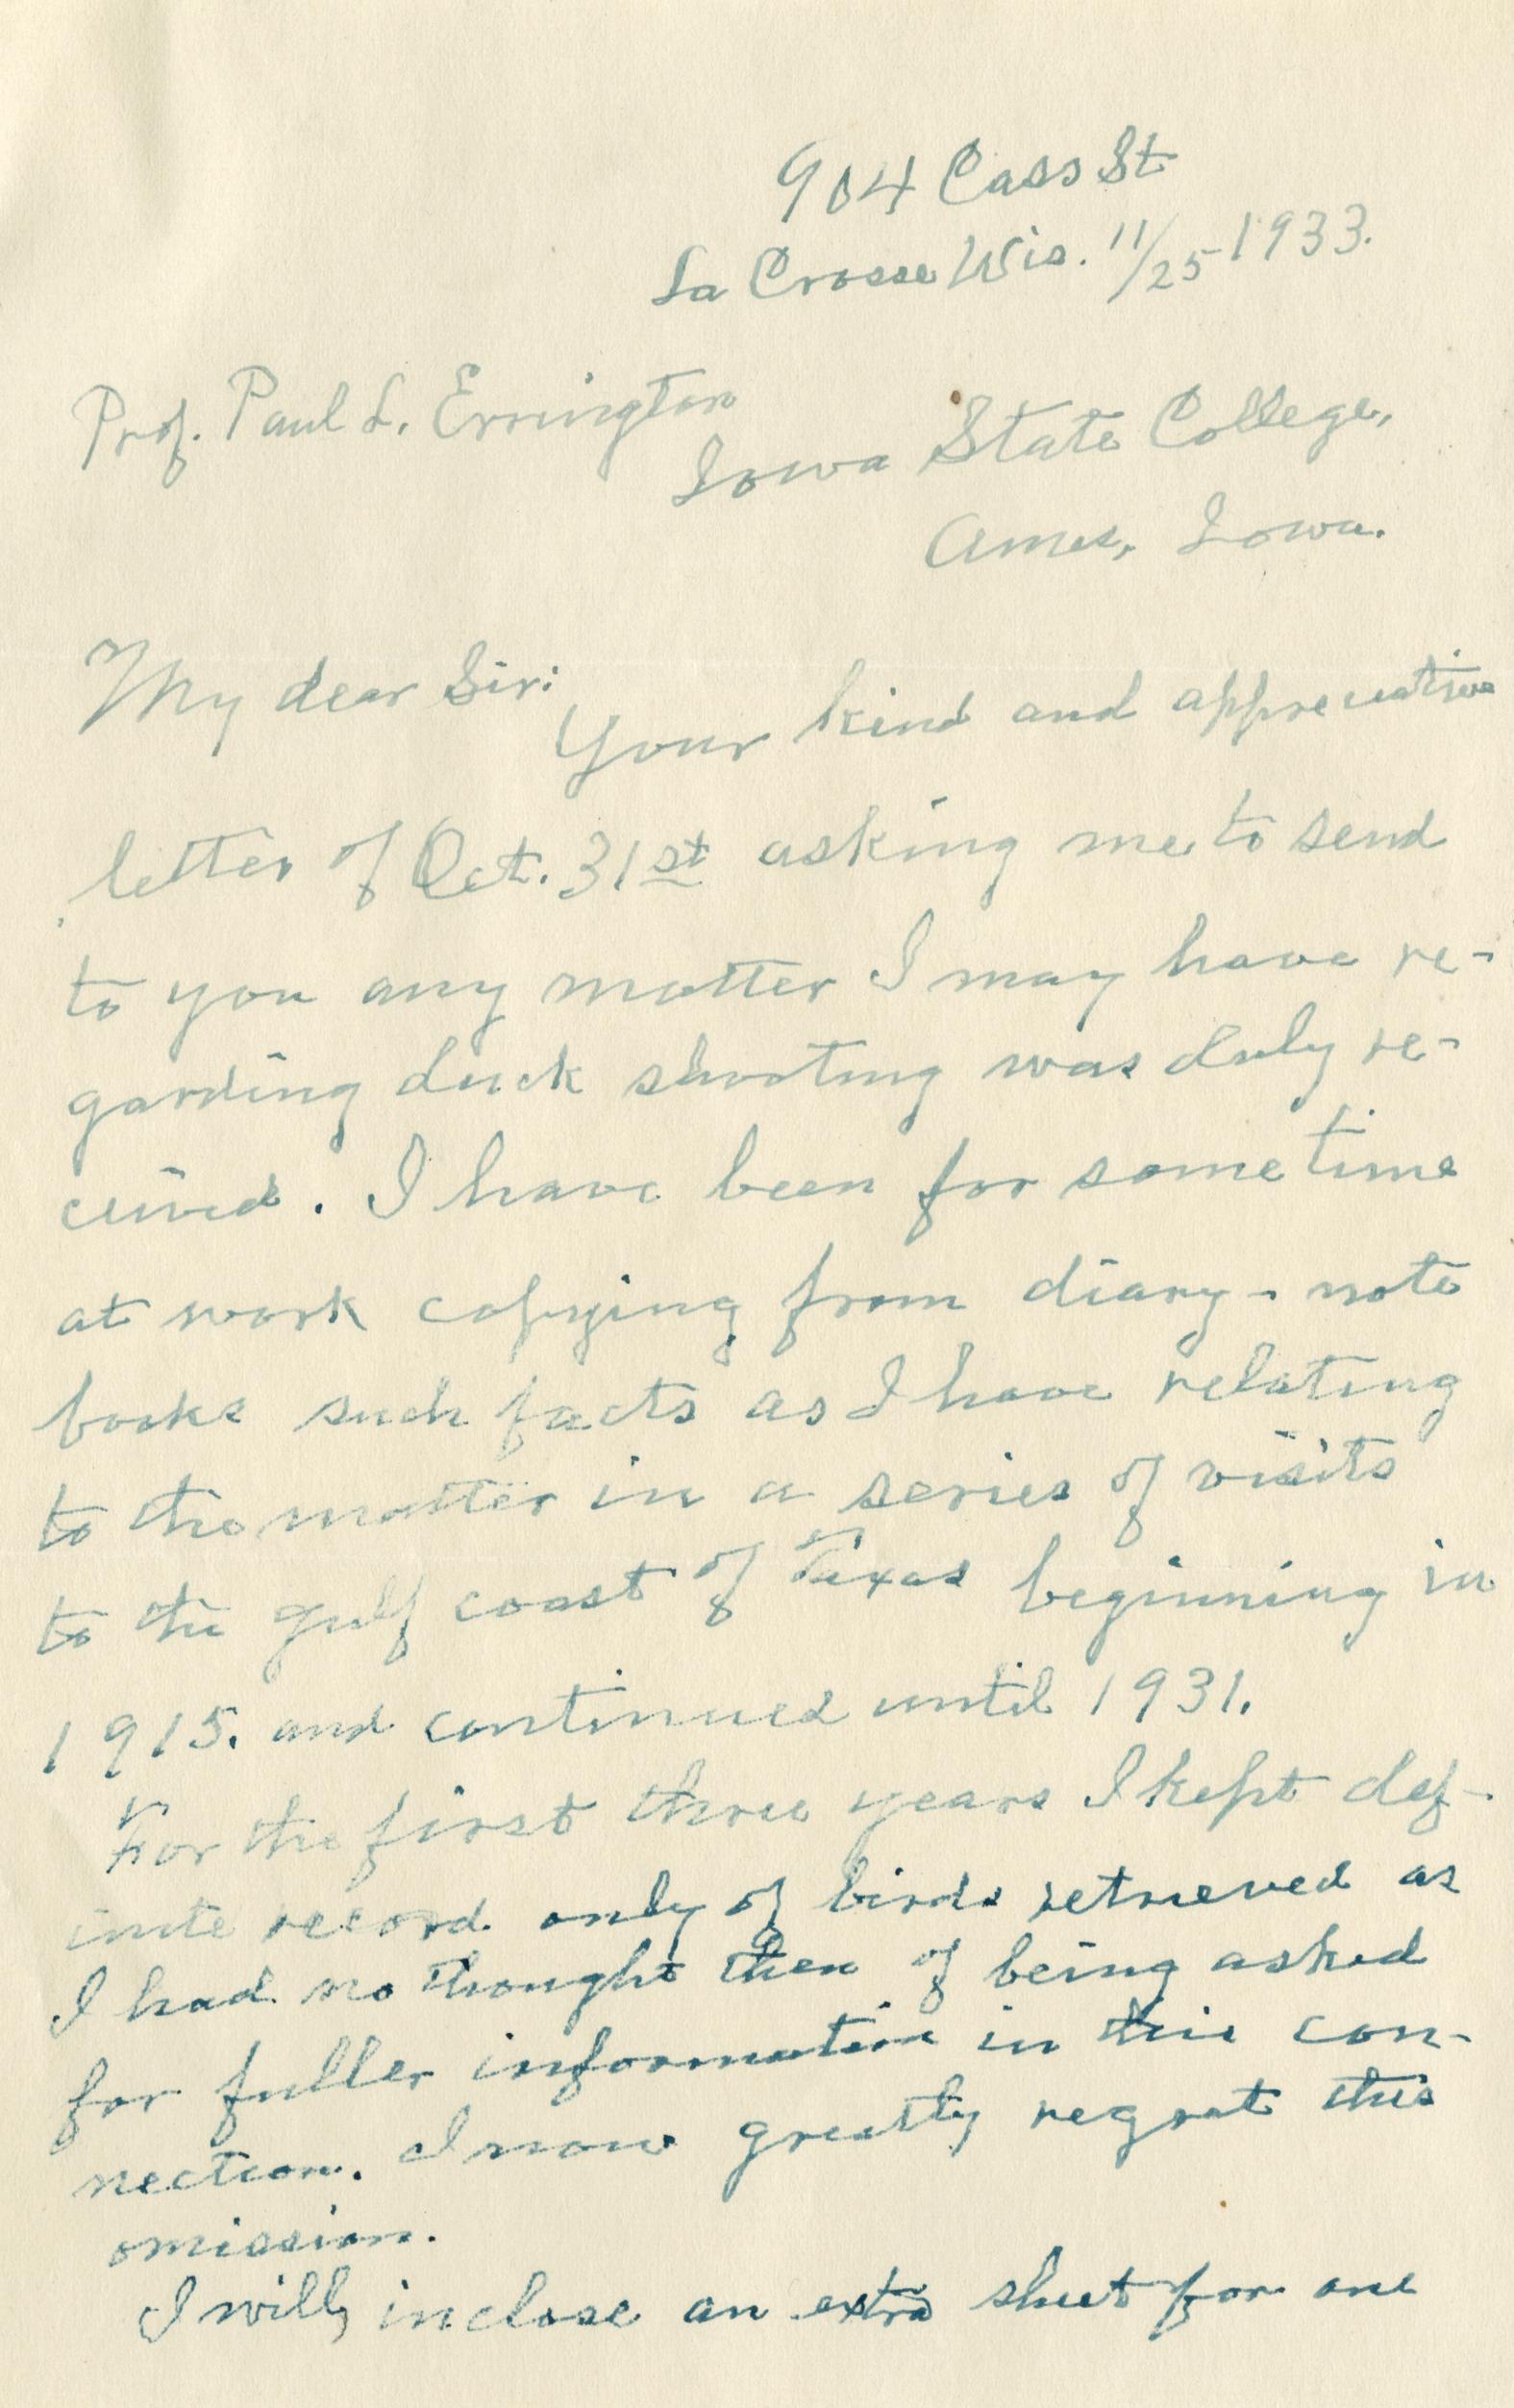 904 Cass St
La Crosse Wis. 11/25 1933.
Prof. Paul L. Errington
Iowa State College,
Ames, Iowa.
My dear Sir:
Your kind and appreciative
letter of Oct. 31st asking me to send
to you any matter I may have re-
garding duck shooting was duly re-
ceived. I have been for some time
at work copying from diary - note
books such facts as I have relating
to the matter in a series of visits
to the gulf coast of Texas beginning in
1915. and continued until 1931.
For the first three years I kept def-
inite record only of birds retrieved as
I had no thought then of being asked
for fuller information in this con-
nection. I now greatly regret this
omission.
I will, inclose an extra sheet for one